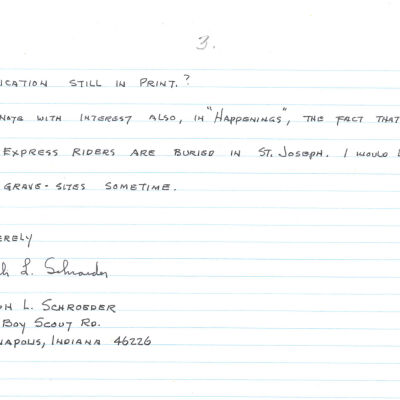 3.
ICATION STILL IN PRINT.?
NOTE WITH INTEREST ALSO, IN "HAPPENINGS", THE FACT THAT
EXPRESS RIDERS ARE BURIED IN ST. JOSEPH. I WOULD
GRAVE-SITES SOMETIME.
ERELY
h L. Schroeder
PH L. SCHROEDER
BOY SCOUT RD.
NAPOLIS, INDIANA 46226